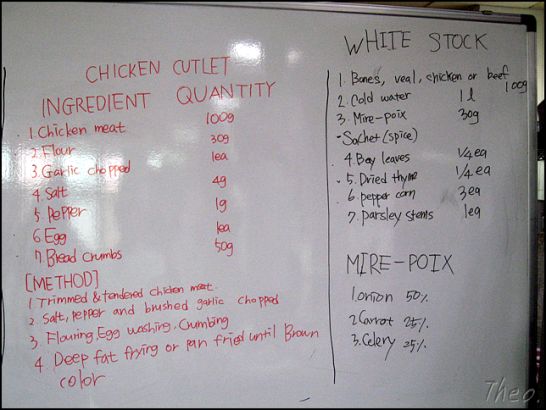 CHICKEN CUTLET
INGREDIENT QUANTITY
1. Chicken meat 100g
2. Flour 30g
3. Garlic chopped 1ea
4. Salt 4g
5. Pepper 1g
6. Egg 1ea
7. Bread Crumbs 50g
[METHOD]
1. Trimmed & tendered chicken meat.
2. Salt, pepper and brushed garlic chopped
3. Flouring, Egg washing, Crumbing
4. Deep fat frying or pan fried until Brown
color
WHITE STOCK
1. Bones, veal, chicken or beef 100g
2. Cold water 1 l
3. Mire-poix 30g
- Sachet (spice)
4. Bay leaves 1/4 ea
5. Dried thyme 1/4 ea
6. pepper corn 3 ea
7. Parsley stems 1ea
MIRE-POIX
1. onion 50%
2. Carrot 25%
3. Celery 25%
Theo